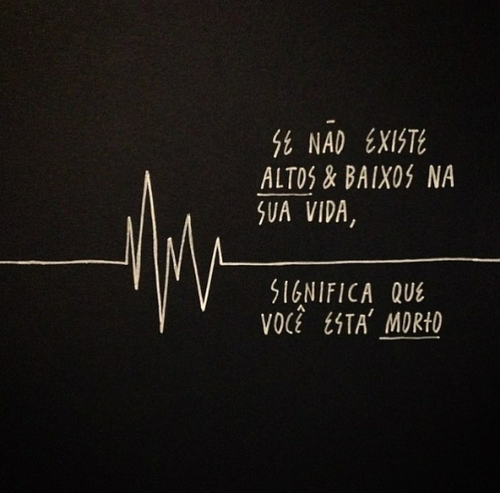 SE NÃO EXISTE
ALTOS & BAIXOS NA
SUA VIDA,
SIGNIFICA QUE
VOCÊ ESTÁ MORTO